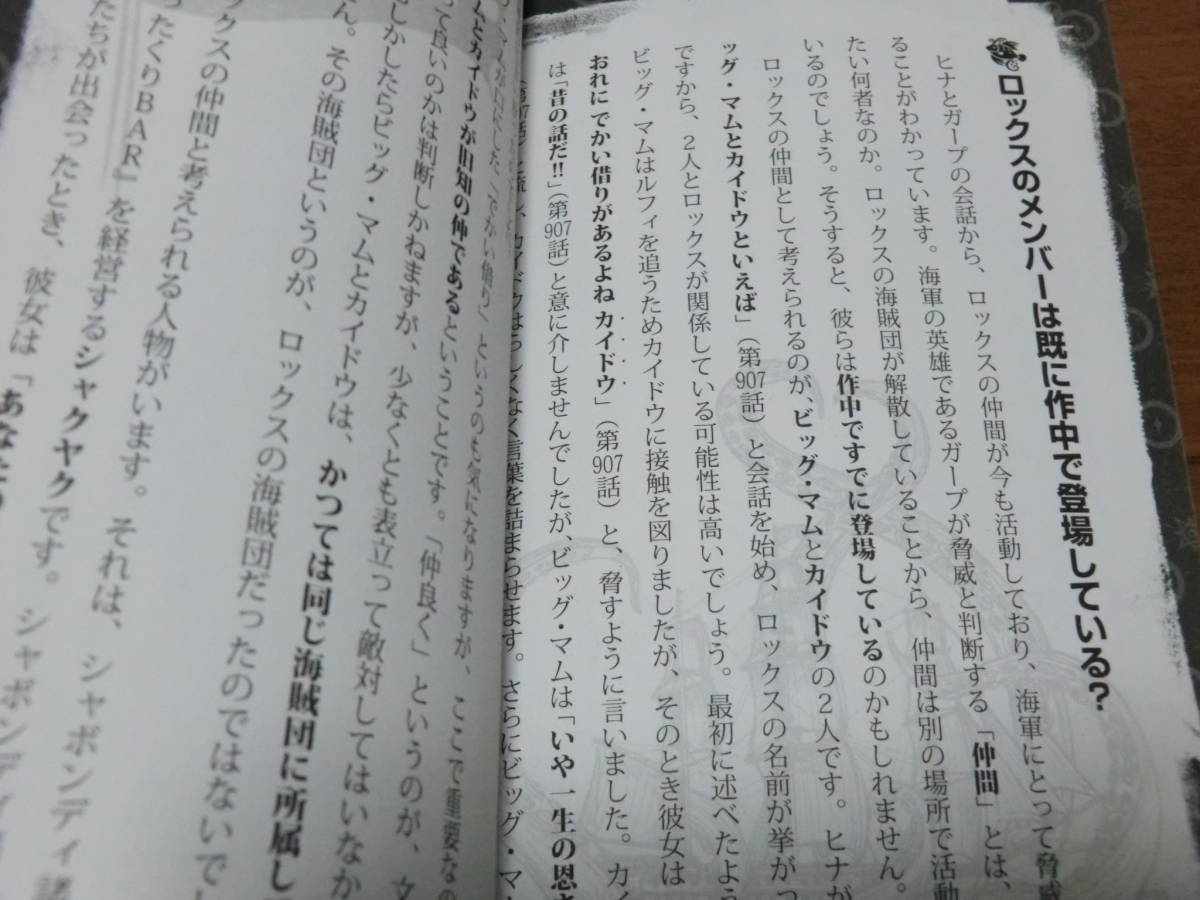 ロックスのメンバーは既に作中で登場している?
ヒナとガープの会話から、ロックスの仲間が今も活動しており、海軍にとって脅威
ることがわかっています。海軍の英雄であるガープが脅威と判断する「仲間」とは、
たい何者なのか。ロックスの海賊団が解散していることから、仲間は別の場所で活動
いるのでしょう。そうすると、彼らは作中ですでに登場しているのかもしれません。
ロックスの仲間として考えられるのが、ビッグ・マムとカイドウの2人です。ヒナが
ッグ・マムとカイドウといえば」(第907話)と会話を始め、ロックスの名前が挙がっ
ですから、2人とロックスが関係している可能性は高いでしょう。最初に述べたよう
ビッグ・マムはルフィを追うためカイドウに接触を図りましたが、そのとき彼女は
おれにでかい借りがあるよね カイドウ」(第907話)と、脅すように言いました。カイ
は「昔の話だ!!」(第907話)と意に介しませんでしたが、ビッグ・マムは「いや一生の恩さ
カイドウはっしくなく言葉を詰まらせます。さらにビッグ・マ
ムが口にした「でかい借り」というのも気になりますが、ここで重要なの
ムとカイドウが旧知の仲であるということです。「仲良く」というのが、文
って良いのかは判断しかねますが、少なくとも表立って敵対してはいなか
しかしたらビッグ・マムとカイドウは、かつては同じ海賊団に所属し
せん。その海賊団というのが、ロックスの海賊団だったのではないでし
ックスの仲間と考えられる人物がいます。それは、シャボンディ諸
ったくりBAR』を経営するシャクヤクです。シャボンディ
たちが出会ったとき、彼女は「あなた